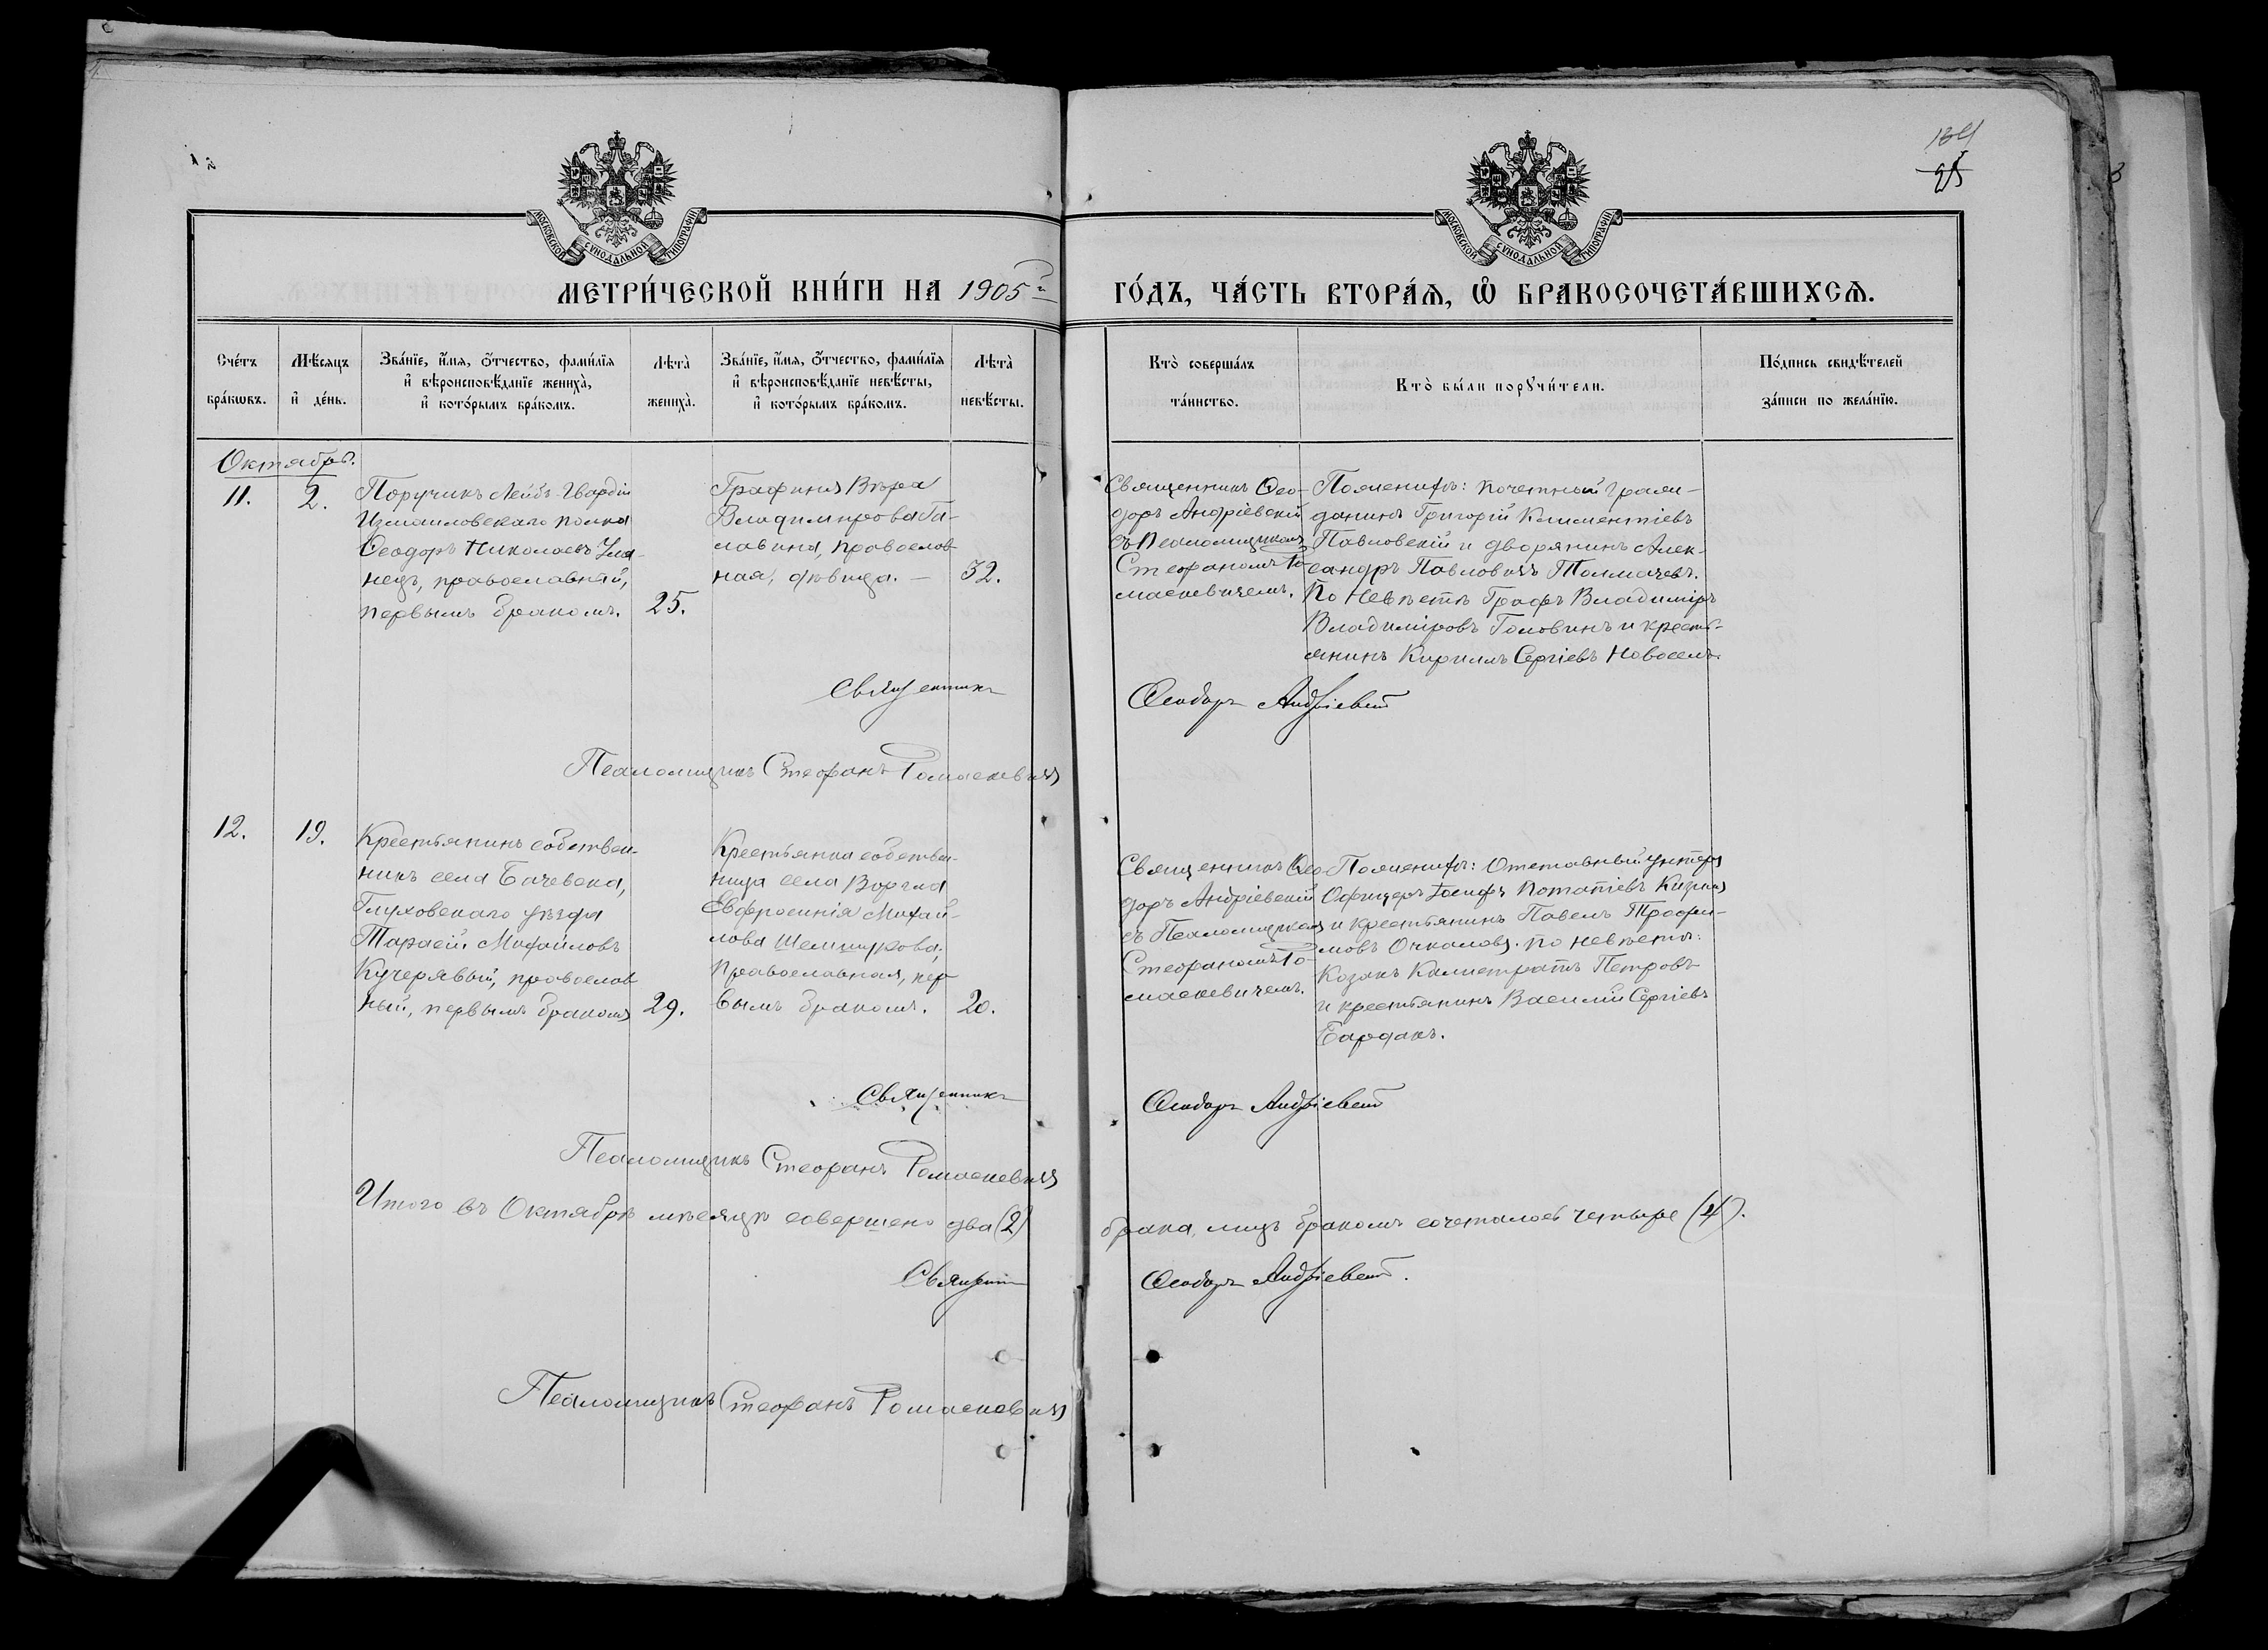 134
25
МОСКОВСКОЙ СУНОДАЛЬНОЙ ТИПОГРАФІИ
МОСКОВСКОЙ СУНОДАЛЬНОЙ ТИПОГРАФІИ
МЕТРИ́ЧЕСКОЙ КНИ́ГИ НА 1905й
ГО́ДЪ, ЧА́СТЬ ВТОРА́Ѧ, Ѽ БРАКОСОЧЕТА́ВШИХСѦ.
Сче́тъ бра́кѡвъ.
Мѣ́сяцъ и҆ де́нь.
Зва́нїе, и҆́мя, ѻ҆́тчество, фами́лїя
и҆ вѣроисповѣ́данїе жениха̀,
и҆ кото́рымъ бра́комъ.
Лѣта̀ жениха̀.
Зва́нїе, и҆́мя, ѻ҆́тчество, фами́лїя
и҆ вѣроисповѣ́данїе невѣ́сты,
и҆ кото́рымъ бра́комъ.
Лѣта̀ невѣ́сты.
Кто̀ соверша́лъ
та́инство.
Кто̀ бы́ли порꙋчи́тели.
По́дпись свидѣ́телей
за́писи по жела́нїю.
Октябрь.
11.
2.
Поручикъ Лейбъ-Гвардіи
Измаиловскаго полка
Ѳеодоръ Николаевъ Ула-
нецъ, православный,
первымъ бракомъ.
25.
Графиня Вѣра
Владимирова Га-
лавина, православ
ная, дѣвица. —
32.
Священникъ Ѳео-
доръ Андріевскій
съ Псаломщикомъ
Стефаномъ Ро-
маскевичемъ.
По женихѣ: почетный граж-
данинъ Григорій Климентіевъ
Павловскій и дворянинъ Алек-
сандръ Павловичъ Толмачевъ.
По невѣстѣ Графъ Владиміръ
Владиміровъ Головинъ и кресть-
янинъ Кириллъ Сергіевъ Новоселъ.
Священникъ
Ѳеодоръ Андріевскій
Псаломщикъ Стефанъ Ромаскевичъ
12.
19.
Крестьянинъ собствен-
никъ села Бачевска,
Глуховскаго уѣзда
Тарасій Михайловъ
Кучерявый, православ
ный, первымъ бракомъ
29.
Крестьянка собствен-
ница села Воргла
Евфросинія Михай-
лова Шемшукова,
православная, пер
вымъ бракомъ.
20.
Священникъ Ѳео
доръ Андріевскій
съ Псаломщикомъ
Стефаномъ Ро-
маскевичемъ.
По женихѣ: Отставный унтеръ
Офицеръ Іосифъ Потапіевъ
и крестьянинъ Павелъ Трофи-
мовъ Очкаловъ. по невѣстѣ:
Козакъ Калистратъ Петровъ
и крестьянинъ Василій Сергіевъ
Бардакъ.
Священникъ
Ѳеодоръ Андріевскій
Псаломщикъ Стефанъ Ромаскевичъ
Итого въ Октябрѣ мѣсяцѣ совершено два (2)
брака, лицъ бракомъ сочеталось четыре (4).
Священникъ
Ѳеодоръ Андріевскій.
Псаломщикъ Стефанъ Ромаскевичъ